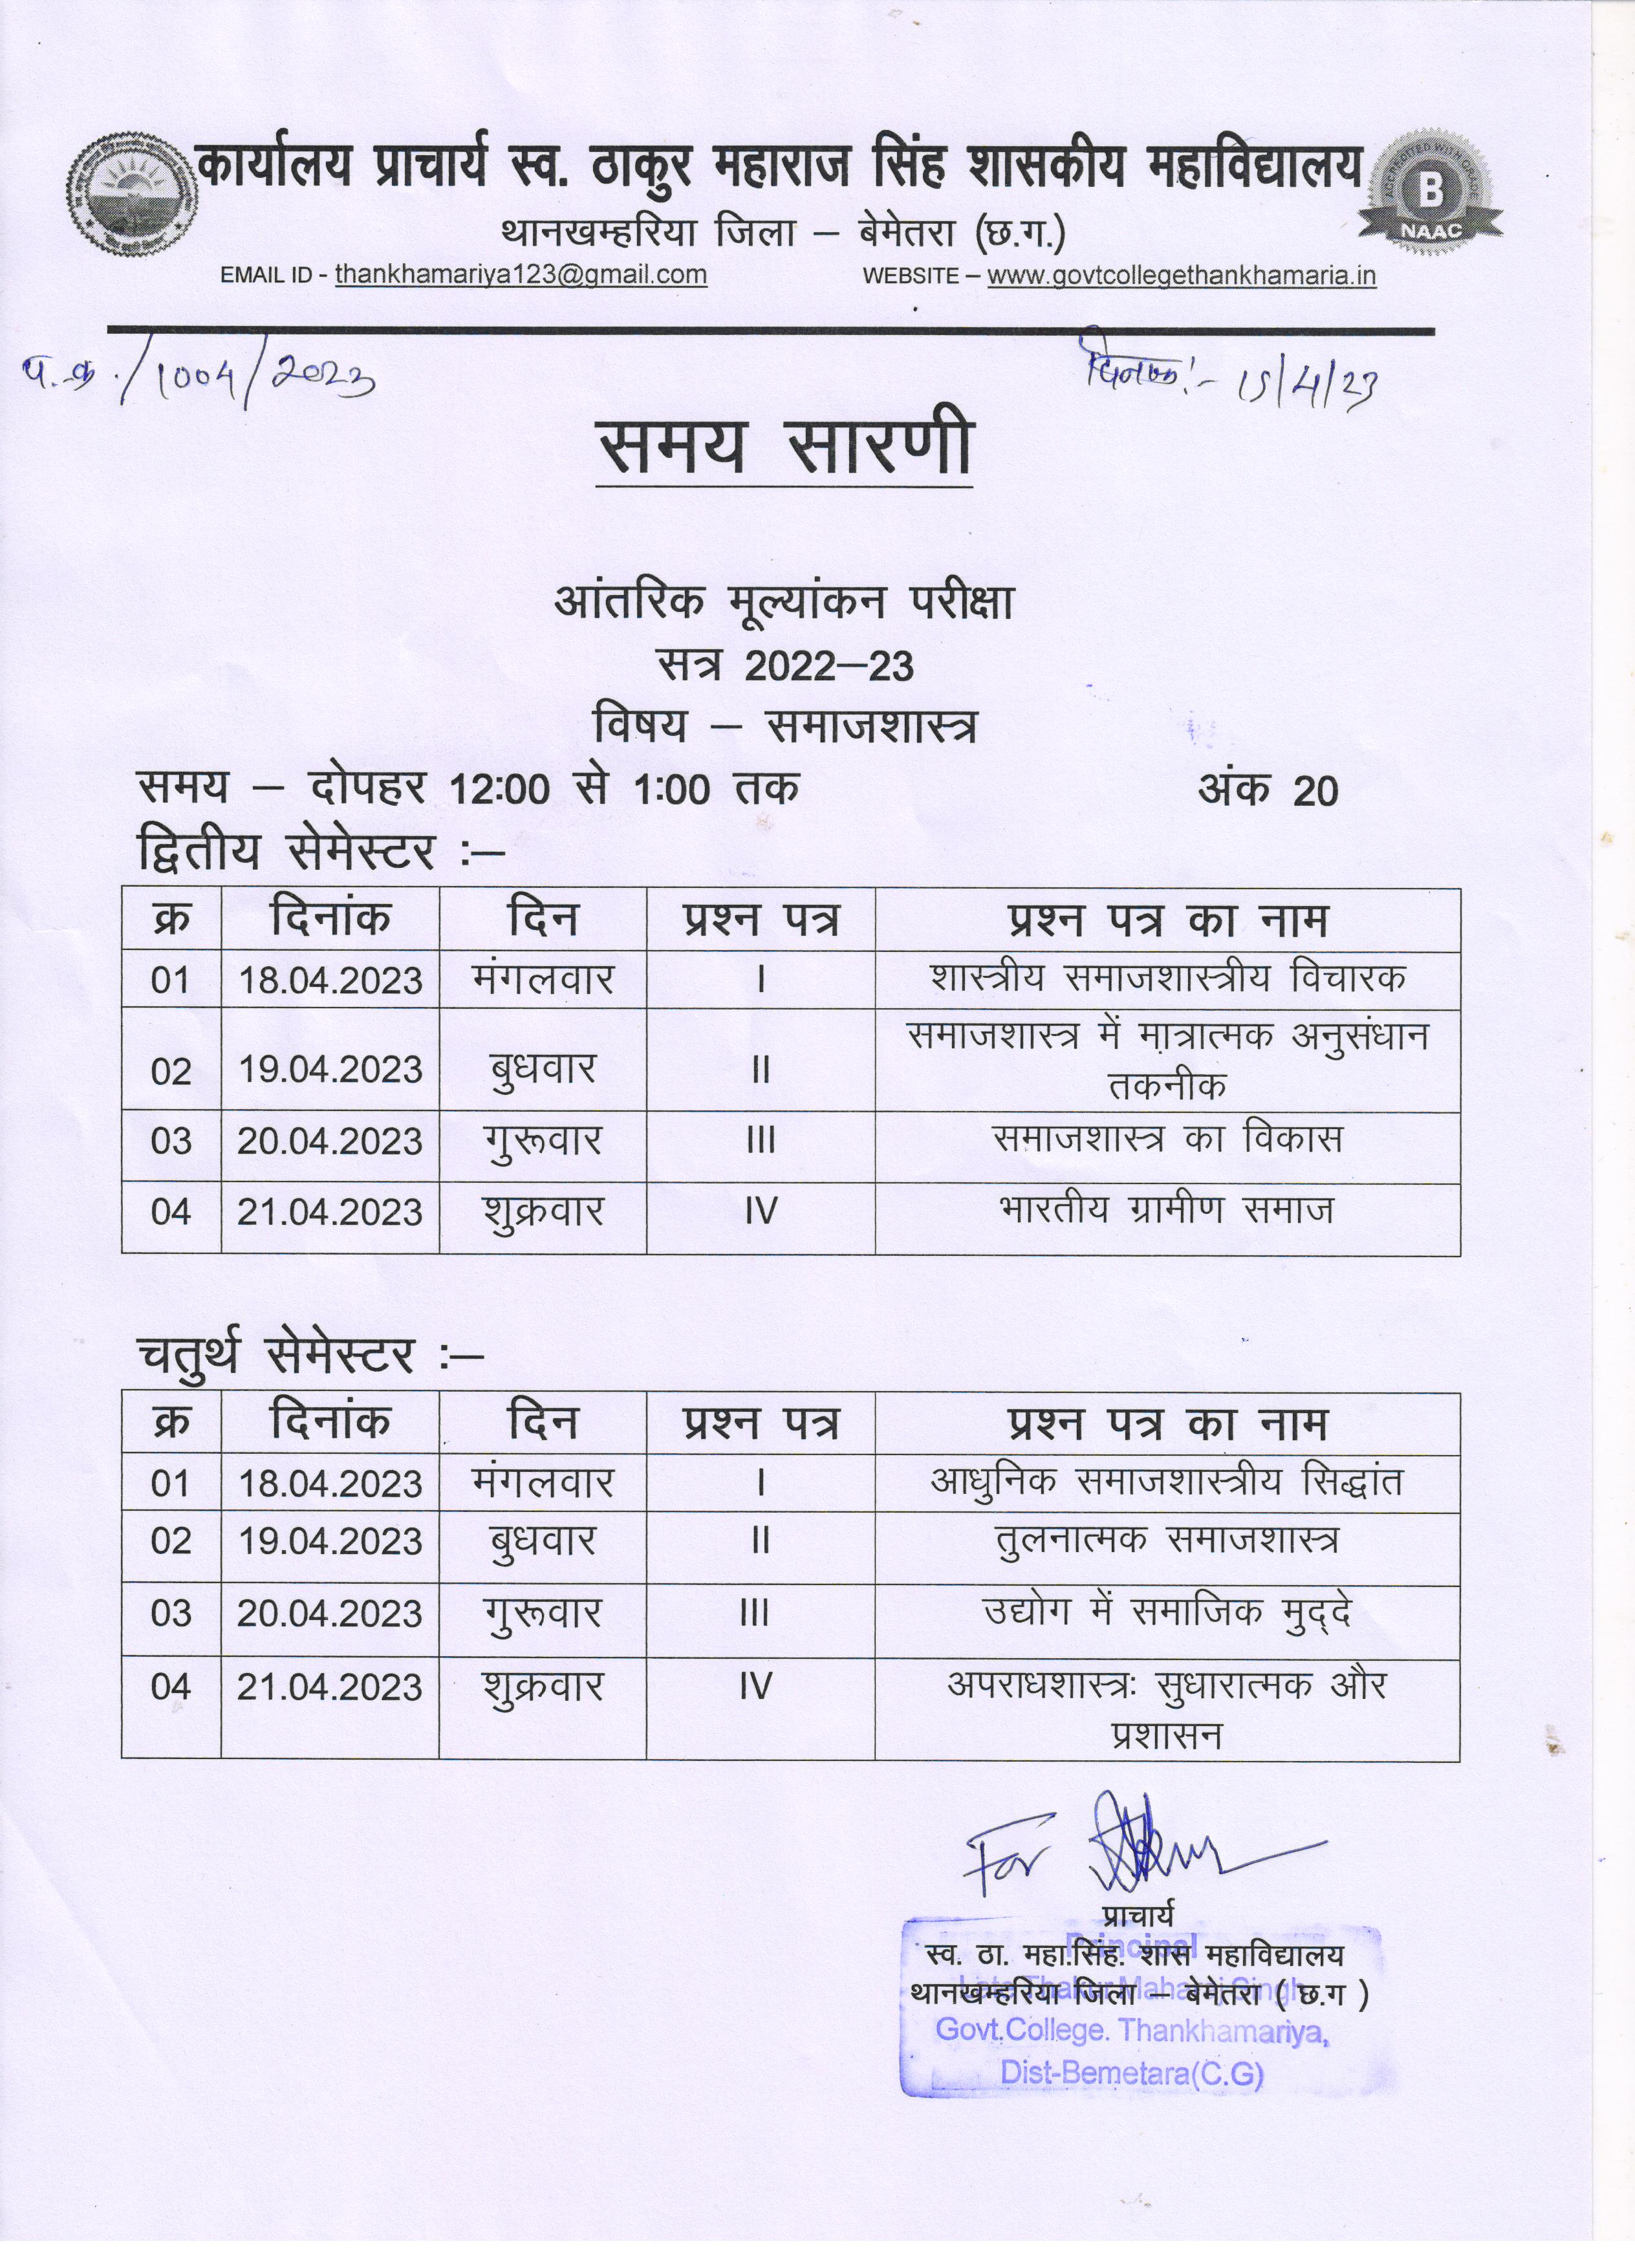 कार्यालय प्राचार्य स्व. ठाकुर महाराज सिंह शासकीय महाविद्यालय
ACCREDITED WITH GRADE
B
NAAC
थानखम्हरिया जिला – बेमेतरा (छ.ग.)
EMAIL ID - thankhamariya123@gmail.com WEBSITE – www.govtcollegethankhamaria.in
प.क्र./1004/2023 दिनांक:- 15/4/23
समय सारणी
आंतरिक मूल्यांकन परीक्षा
सत्र 2022–23
विषय – समाजशास्त्र
समय – दोपहर 12:00 से 1:00 तक अंक 20
द्वितीय सेमेस्टर :–
क्र दिनांक दिन प्रश्न पत्र प्रश्न पत्र का नाम
01 18.04.2023 मंगलवार I शास्त्रीय समाजशास्त्रीय विचारक
02 19.04.2023 बुधवार II समाजशास्त्र में मात्रात्मक अनुसंधान
तकनीक
03 20.04.2023 गुरूवार III समाजशास्त्र का विकास
04 21.04.2023 शुक्रवार IV भारतीय ग्रामीण समाज
चतुर्थ सेमेस्टर :–
क्र दिनांक दिन प्रश्न पत्र प्रश्न पत्र का नाम
01 18.04.2023 मंगलवार I आधुनिक समाजशास्त्रीय सिद्धांत
02 19.04.2023 बुधवार II तुलनात्मक समाजशास्त्र
03 20.04.2023 गुरूवार III उद्योग में समाजिक मुद्‌दे
04 21.04.2023 शुक्रवार IV अपराधशास्त्रः सुधारात्मक और
प्रशासन
For
प्राचार्य
स्व. ठा. महा.सिंह. शास महाविद्यालय
थानखम्हरिया जिला – बेमेतरा ( छ.ग )
Principal
Late Thakur Maharaj Singh
Govt.College. Thankhamariya,
Dist-Bemetara(C.G)